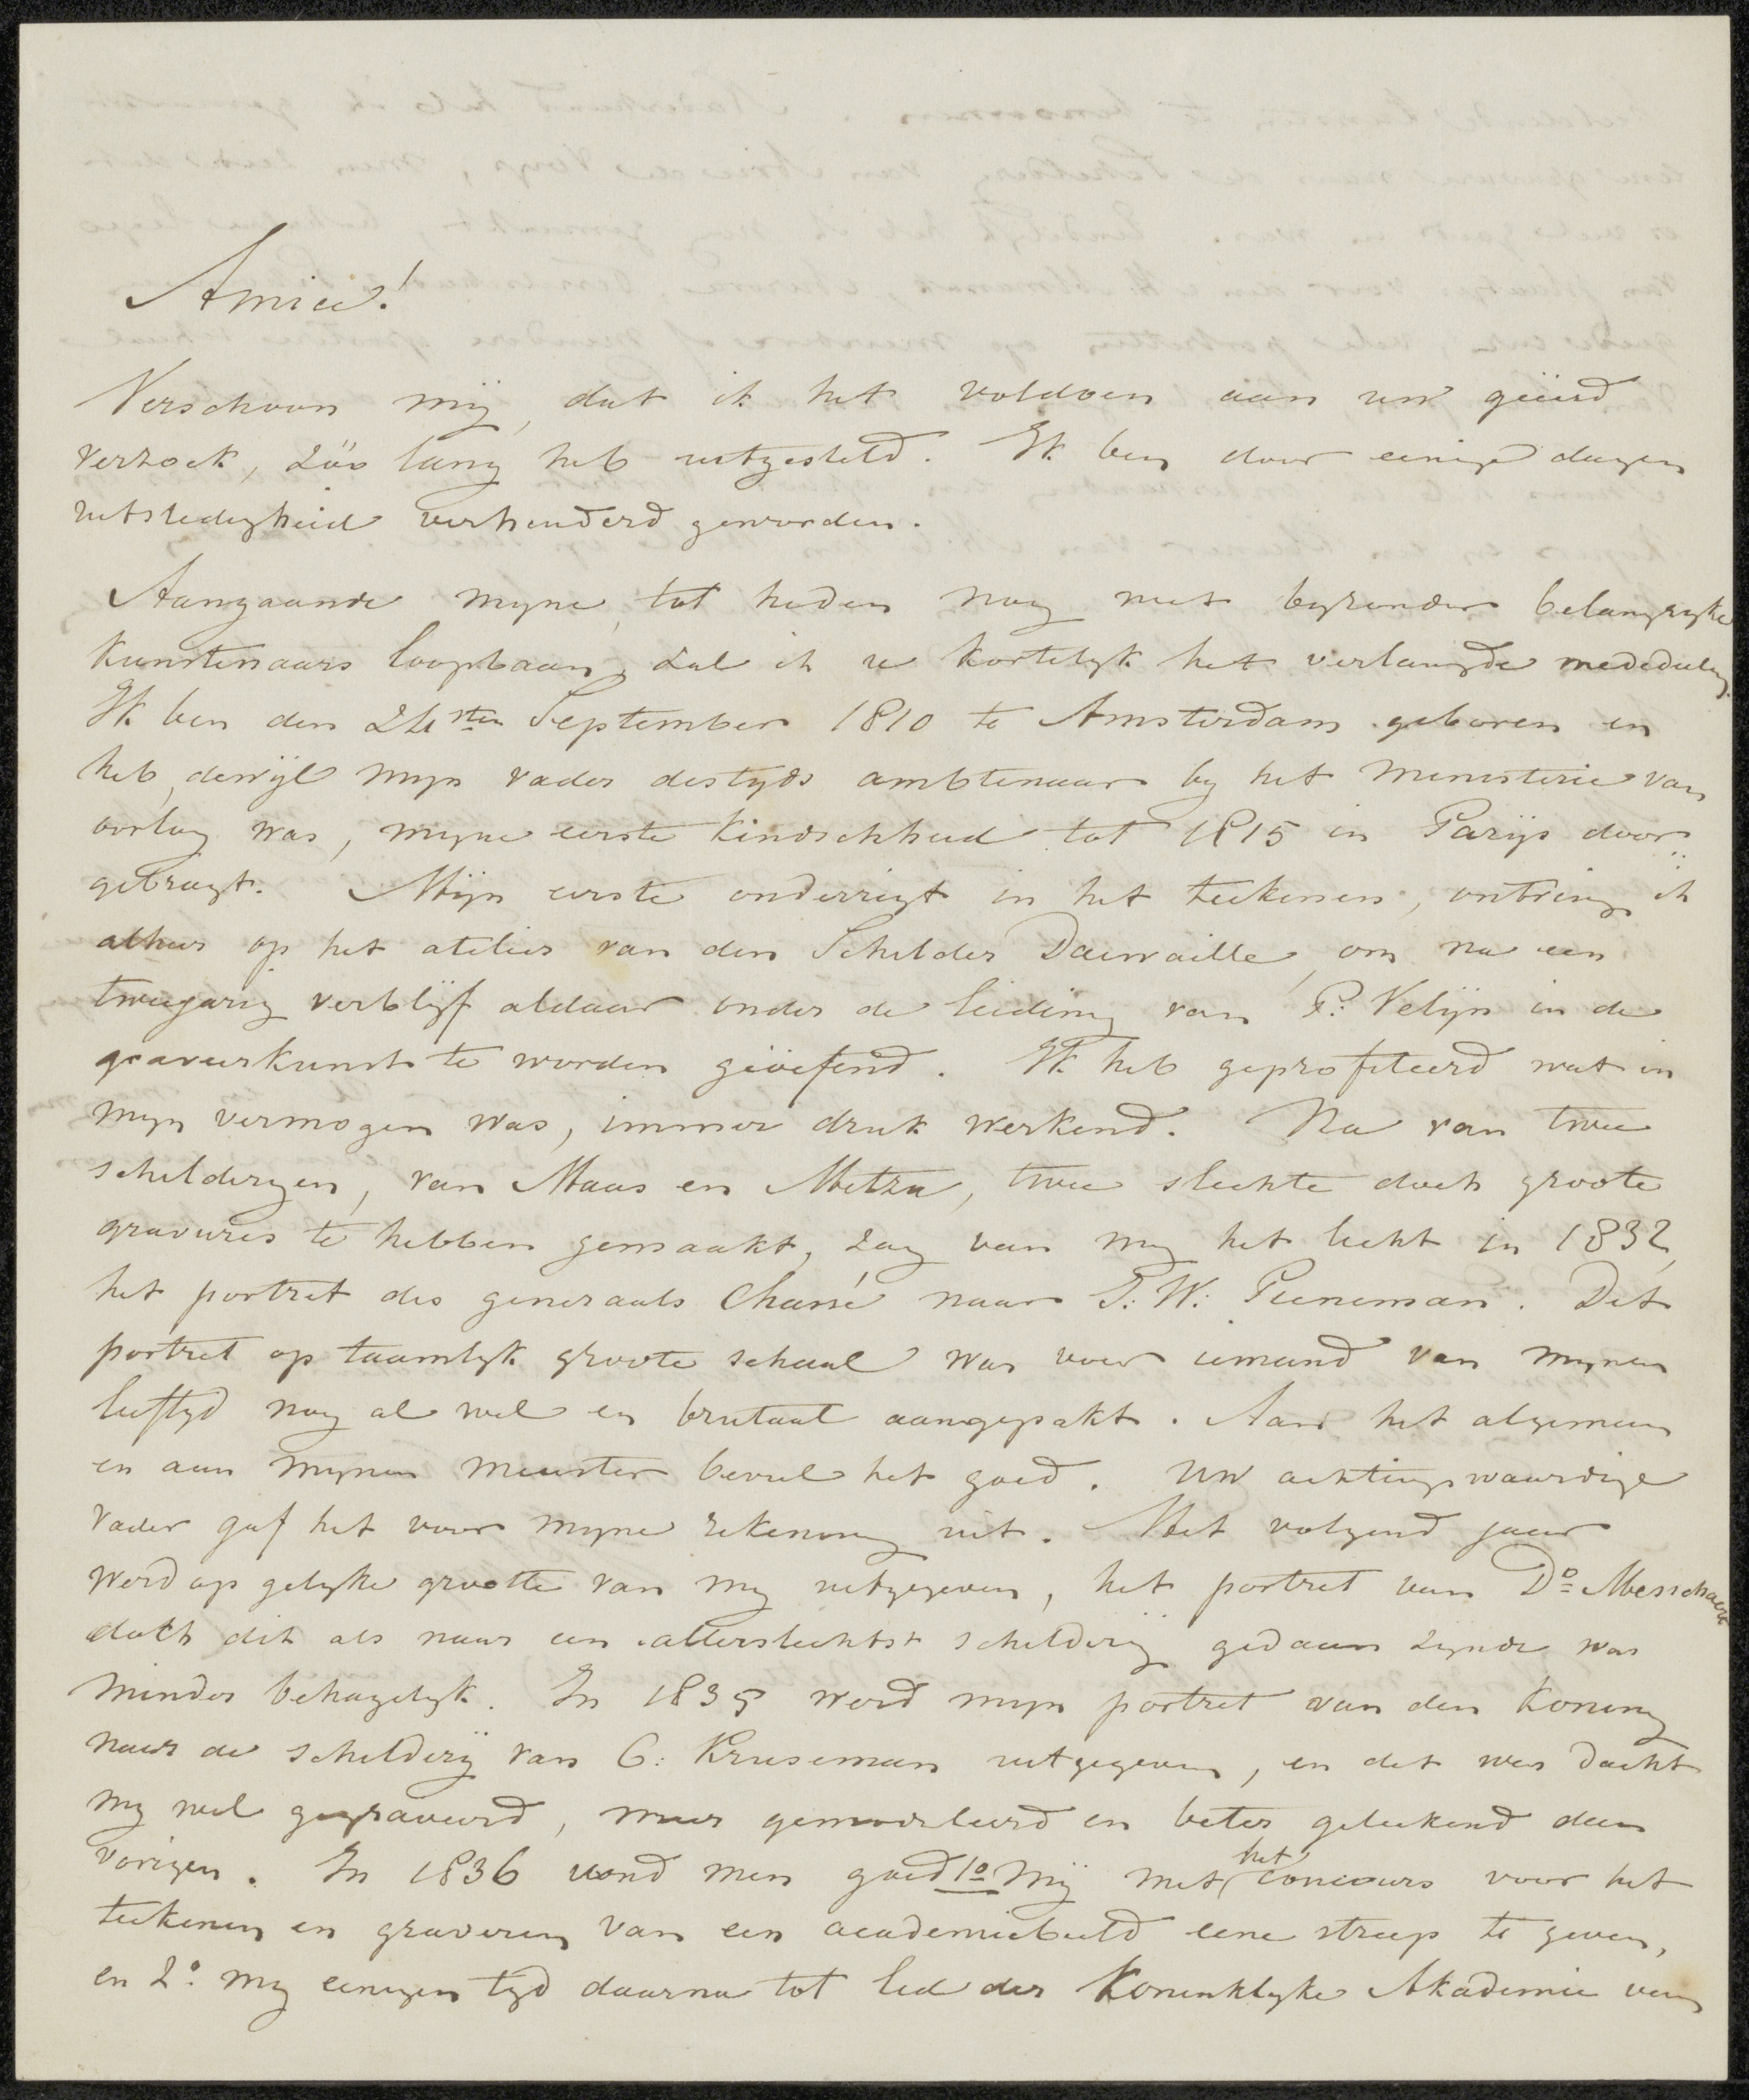 Amice!
Verschoon mij, dat ik het voldoen aan uw geëerd
verzoek, zoo lang heb uitgesteld. Ik ben door eenige dagen
uitstedigheid verhinderd geworden.
Aangaande myne, tot heden nog niet byzonder belangryke
kunstenaars loopbaan, zal ik u kortelyk het verlangde mededeelen.
Ik ben den 24sten September 1810 te Amsterdam geboren en
heb, dewyl myn vader destyds ambtenaar by het ministerie van
oorlog was, myne eerste kindschheid tot 1815 in Parijs door
gebragt. Mijn eerste onderrigt in het teekenen, ontving ik
alhier op het atelier van den Schilder Daiwaille, om na een
tweejarig verblijf aldaar onder de leiding van P: Velijn in de
graveerkunst te worden geoefend. Ik heb geprofiteerd wat in
myn vermogen was, immer druk werkend. Na van twee
schilderyen, van Maas en Metzu, twee slechte doch groote
gravures te hebben gemaakt, zag van my het licht in 1832,
het portret des generaals Chassé naar J: W: Pieneman. Dit
portret op taamlyk groote schaal was voor iemand van mynen
leeftyd nog al wel en brutaal aangepakt. Aan het algemeen
en aan mynen meester beviel het goed. Uw achtingswaardige
vader gaf het voor myne rekening uit. Het volgend jaar
werd op gelyke grootte van my uitgegeven, het portret van Do Messchaert
doch dit als naar een allerslechtst schildery gedaan zynde was
minder behagelyk. In 1835 werd myn portret van den Koning
naar de schilderij van C: Kruseman uitgegeven, en dit was dacht
my wel gegraveerd, meer gemodeleerd en beter geteekend dan
vorigen. In 1836 vond men goed 1o mij met het concours voor het
teekenen en graveren van een academiebeeld eene streep te geven,
en 2o my eenigen tyd daarna tot lid der Koninklyke Akademie van